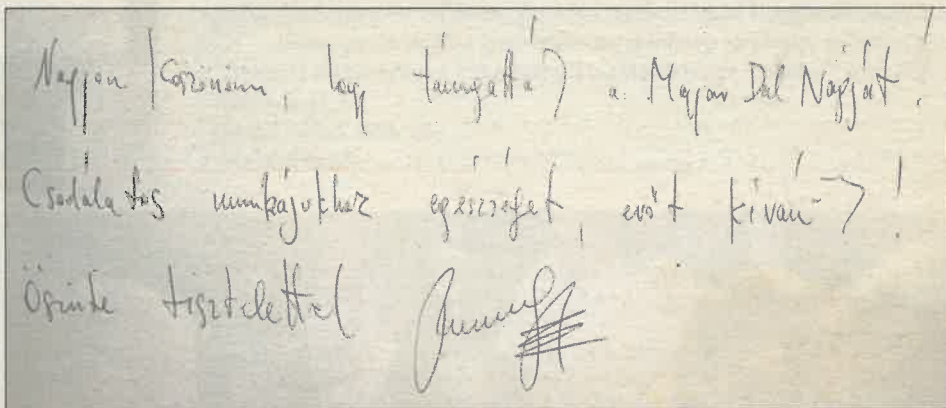 Nagyon köszönöm, hogy támogatták a Magyar Dal Napját!
Csodálatos munkájukhoz egészséget, erőt kíván!
Őszinte tisztelettel